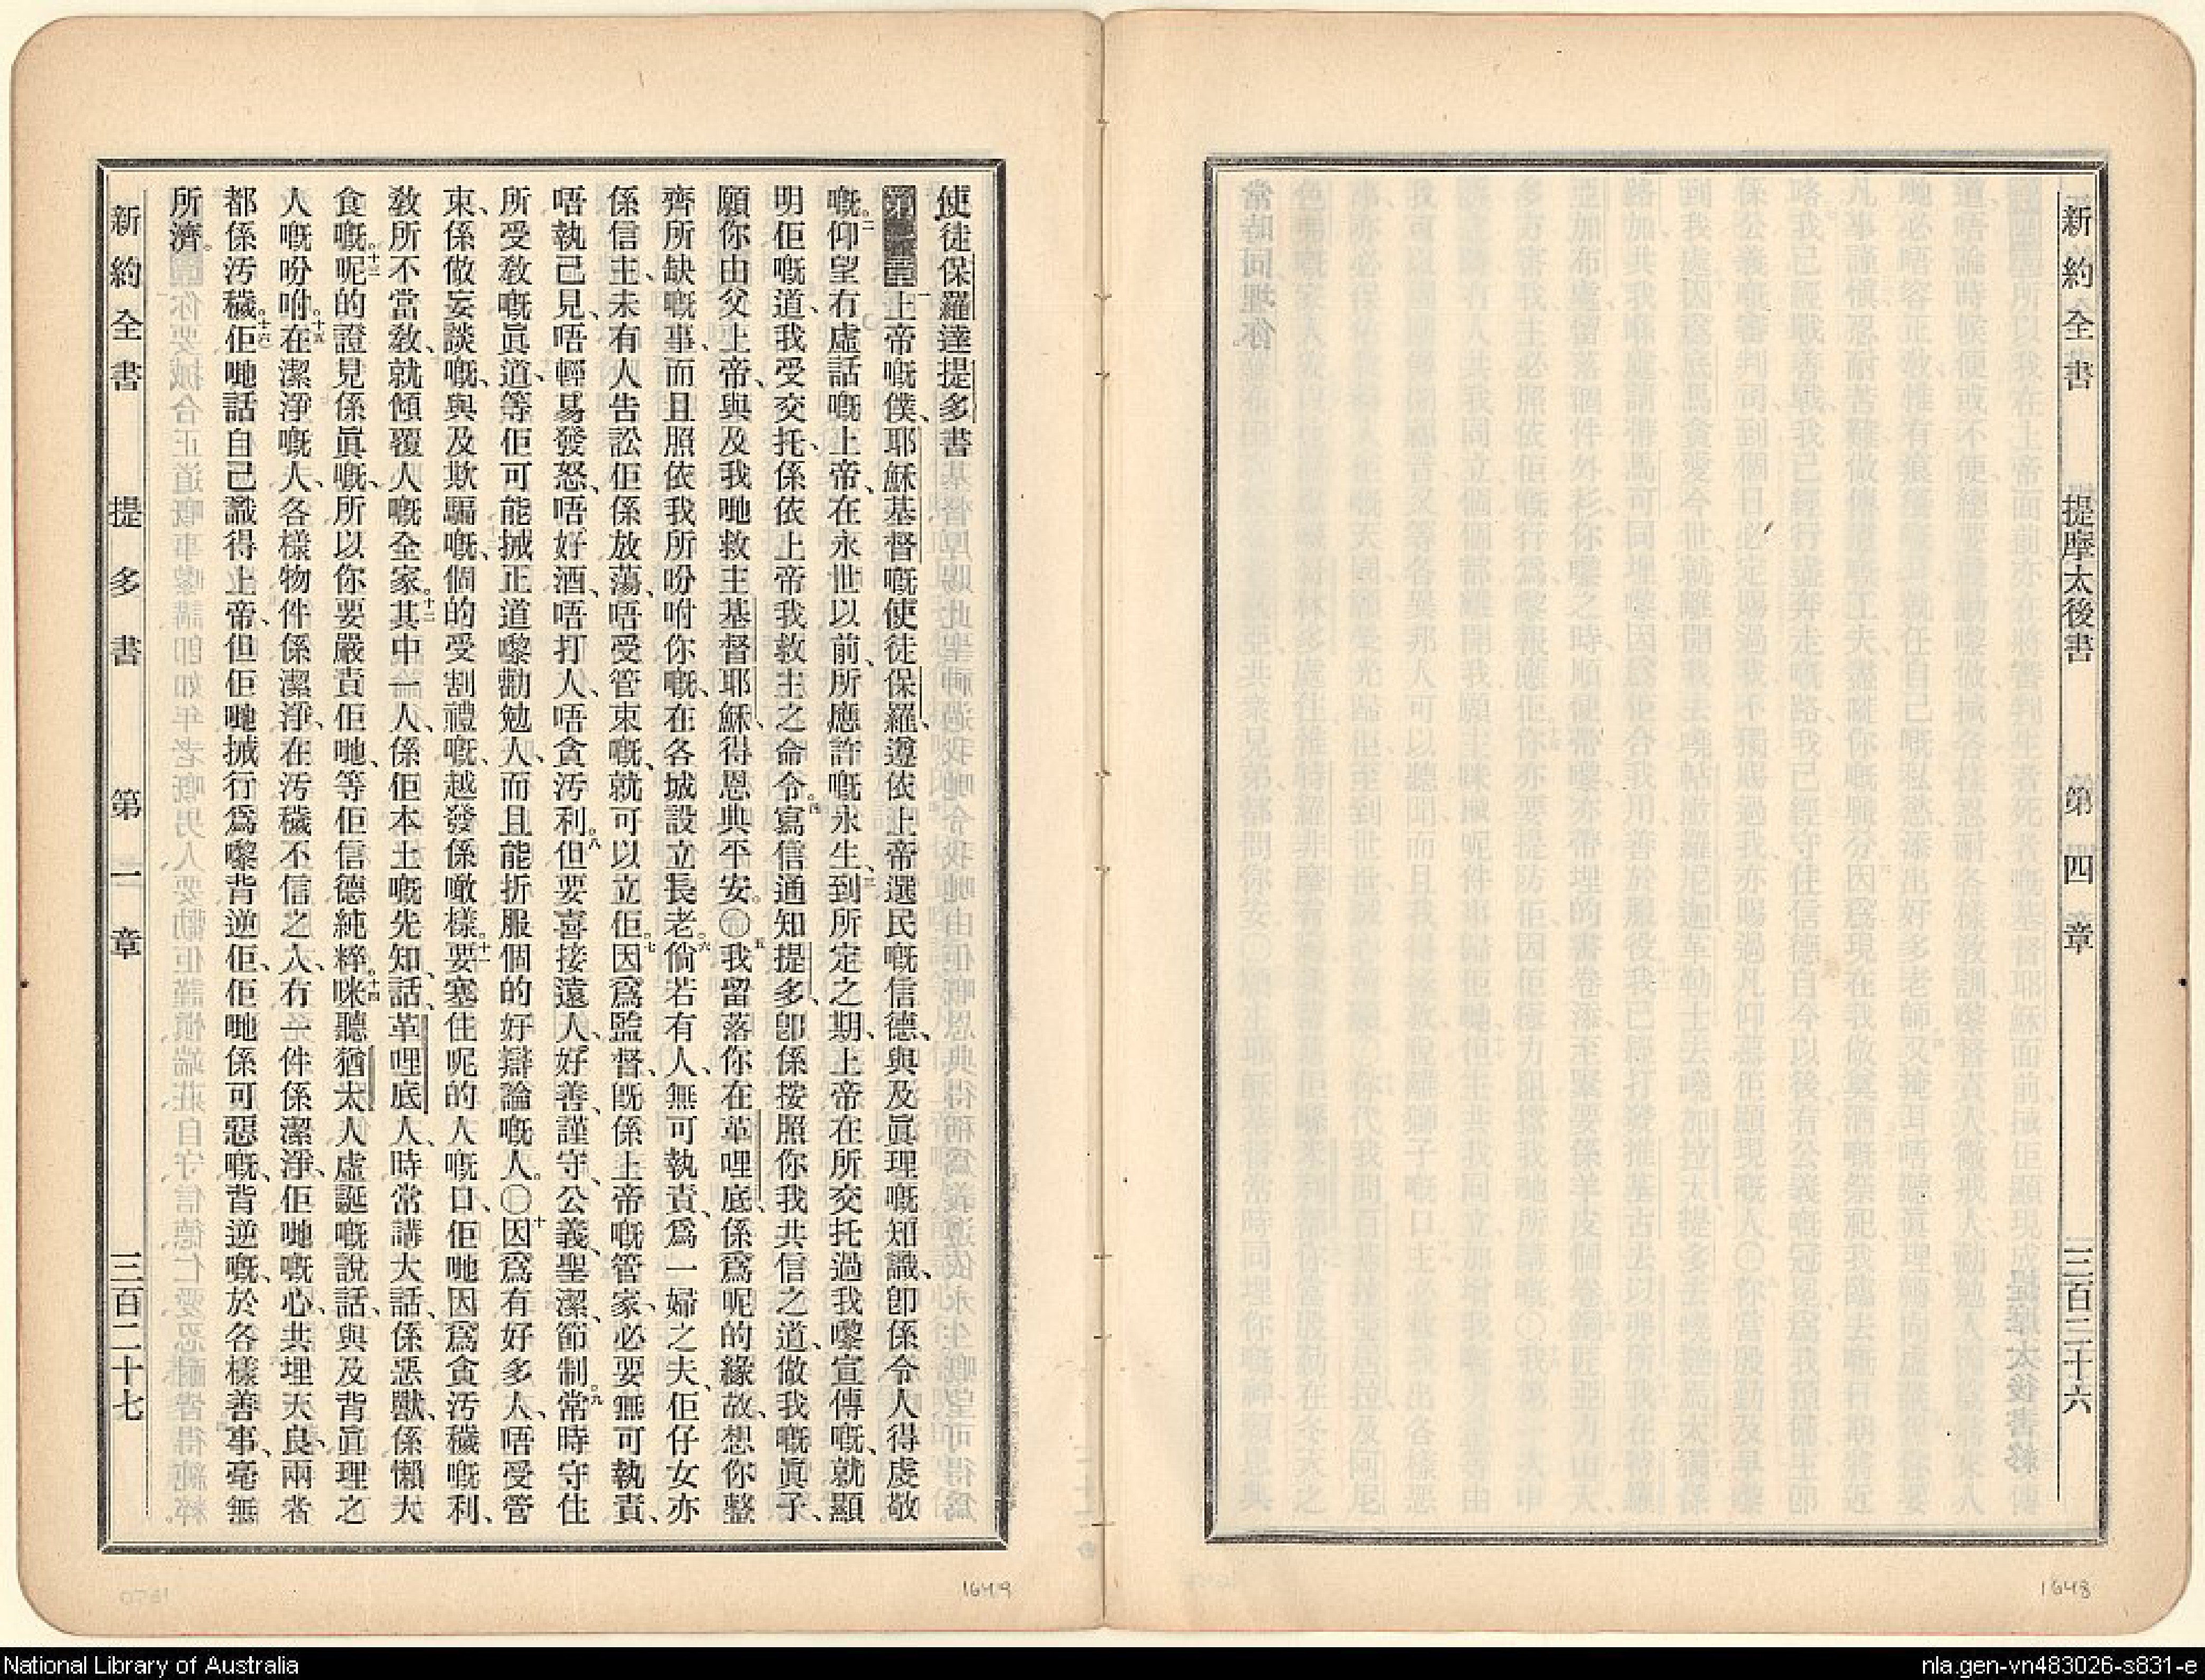 新約全書 提摩太後書 第四章 三百二十六
使徒保羅達提多書
第一章 一上帝嘅僕、耶穌基督嘅使徒保羅、遵依上帝選民嘅信德、與及眞理嘅知識、卽係令人得虔敬
嘅。二仰望冇虛話嘅上帝、在永世以前、所應許嘅永生、三到所定之期、上帝在所交托過我嚟宣傳嘅、就顯
明佢嘅道、我受交托、係依上帝我救主之命令。四寫信通知提多、卽係按照你我共信之道、做我嘅眞子、
願你由父上帝、與及我哋救主基督耶穌、得恩典平安。〇五我留落你在革哩底、係爲呢的緣故、想你整
齊所缺嘅事、而且照依我所吩咐你嘅、在各城設立長老。六倘若有人、無可執責、爲一婦之夫、佢仔女亦
係信主、未有人告訟佢係放蕩、唔受管束嘅、就可以立佢。七因爲監督、旣係上帝嘅管家、必要無可執責、
唔執己見、唔輕易發怒、唔好酒、唔打人、唔貪汚利。八但要喜接遠人、好善、謹守、公義、聖潔、節制。九常時守住
所受敎嘅眞道、等佢可能搣正道嚟勸勉人、而且能折服個的好辯論嘅人。〇十因爲有好多人、唔受管
束、係做妄談嘅、與及欺騙嘅、個的受割禮嘅、越發係噉樣。十一要塞住呢的人嘅口、佢哋因爲貪汚穢嘅利、
敎所不當敎、就傾覆人嘅全家。十二其中一人、係佢本土嘅先知、話、革哩底人、時常講大話、係惡獸、係懶大
食嘅。十三呢的證見係眞嘅、所以你要嚴責佢哋、等佢信德純粹。十四咪聽猶太人虛誕嘅說話、與及背眞理之
人嘅吩咐。十五在潔淨嘅人、各樣物件係潔淨、在汚穢不信之人、冇一件係潔淨、佢哋嘅心、共埋天良、兩者
都係汚穢。十六佢哋話自己識得上帝、但佢哋搣行爲嚟背逆佢、佢哋係可惡嘅、背逆嘅、於各樣善事、毫無
所濟。
新約全書 提多書 第一章 三百二十七
1649
1648
National Library of Australia
nla.gen-vn483026-s831-e